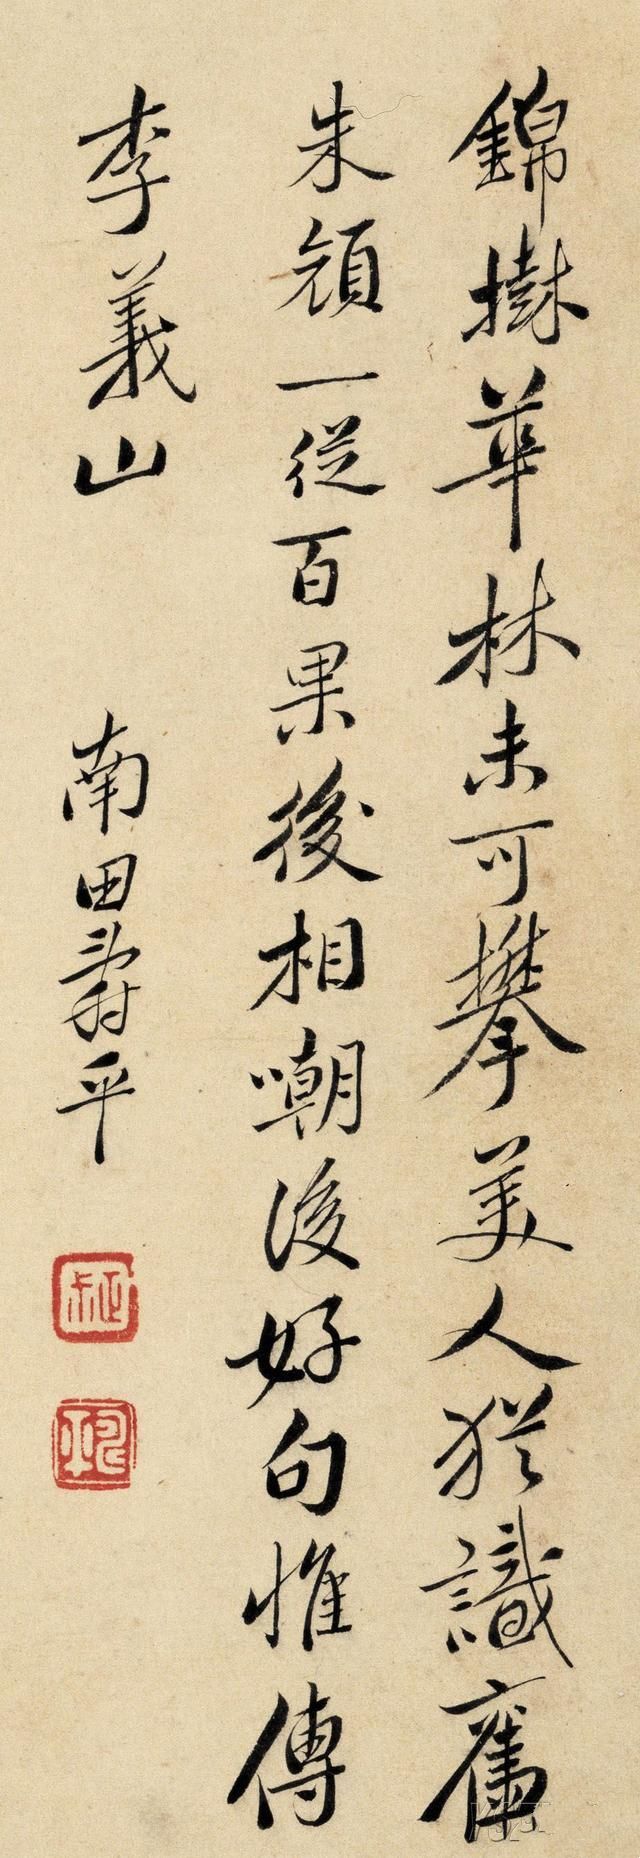 錦樹華林未可攀美人猶識舊
朱顔一從百果嘲後好句惟傳
李義山
南田壽平